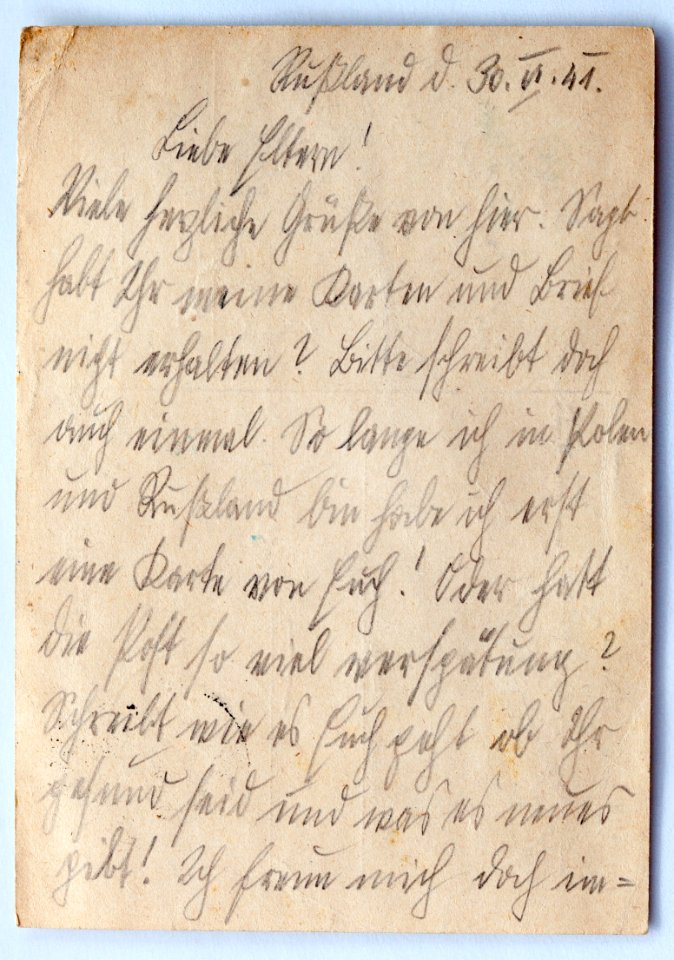 Rußland d. 30. VI. 41.
Liebe Eltern!
Viele herzliche Grüße von hier. Sagt
habt Ihr meine Karten und Brief
nicht erhalten? Bitte schreibt doch
auch einmal. So lange ich in Polen
und Rußland bin habe ich erst
eine Karte von Euch! Oder hatt
die Post so viel verspätung?
Schreibt wie es Euch geht ob Ihr
gesund seid und was es neues
gibt! Ich freun mich doch im=